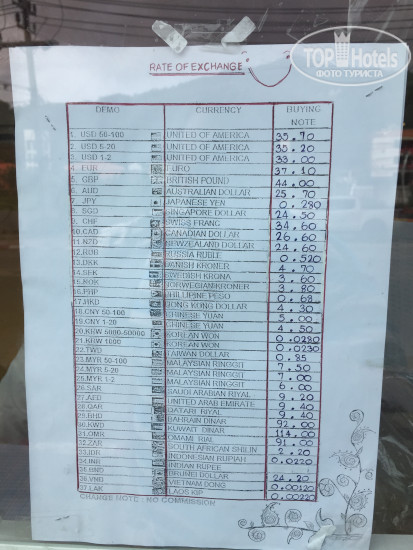 TOP Hotels
ФОТО ТУРИСТА
RATE OF EXCHANGE
DEMO CURRENCY BUYING NOTE
1. USD 50-100 UNITED OF AMERICA 35.70
2. USD 5-20 UNITED OF AMERICA 35.20
3. USD 1-2 UNITED OF AMERICA 33.00
4. EUR EURO 37.10
5. GBP BRITISH POUND 44.00
6. AUD AUSTRALIAN DOLLAR 25.70
7. JPY JAPANESE YEN 0.280
8. SGD SINGAPORE DOLLAR 24.50
9. CHF SWISS FRANC 34.60
10.CAD CANADIAN DOLLAR 26.60
11.NZD NEWZEALAND DOLLAR 24.60
12.RUB RUSSIA RUBLE 0.520
13.DKK DANISH KRONER 4.70
14.SEK SWEDISH KRONA 3.60
15.NOK NORWEGIANKRONER 3.80
16.PHP PHILLIPINE PESO 0.68
17.HKD HONG KONG DOLLAR 4.30
18.CNY 50-100 CHINESE YUAN 5.00
19.CNY 1-20 CHINESE YUAN 4.50
20.KRW 5000-50000 KOREAN WON 0.0280
21.KRW 1000 KOREAN WON 0.0230
22.TWD TAIWAN DOLLAR 0.85
23.MYR 50-100 MALAYSIAN RINGGIT 7.50
24.MYR 5-20 MALAYSIAN RINGGIT 7.00
25.MYR 1-2 MALAYSIAN RINGGIT 6.00
26.SAR SAUDI ARABIAN RIYAL 9.20
27.AED UNITED ARAB EMIRATE 9.40
28.QAR QATARI RIYAL 9.40
29.BHD BAHRAIN DINAR 92.00
30.KWD KUWAIT DINAR 114.00
31.OMR OMANI RIAL 91.00
32.ZAR SOUTH AFRICAN SHILIN 2.20
33.IDR INDONESIAN RUPIAH 0.0220
34.INR INDIAN RUPEE
35.BND BRUNEI DOLLAR 24.20
36.VND VIETNAM DONG 0.00120
37.LAK LAOS KIP 0.00220
CHANGE NOTE : NO COMMISSION